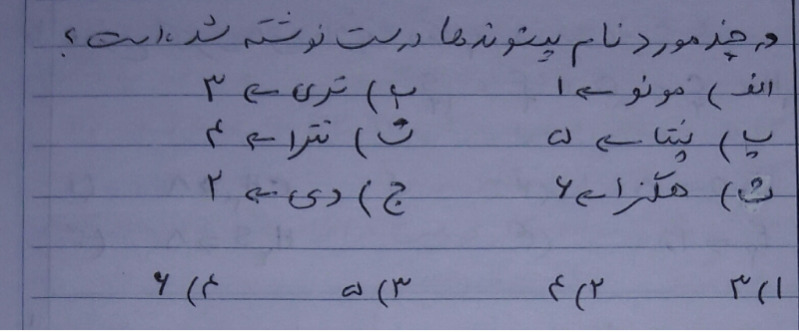 در چند مورد نام پیشوندها درست نوشته شده است؟
الف) مونو ← ۱ ب) تری ← ۳
پ) پنتا ← ۵ ت) تترا ← ۴
ث) هگزا ← ۶ ج) دی ← ۲
۱) ۳ ۲) ۴ ۳) ۵ ۴) ۶